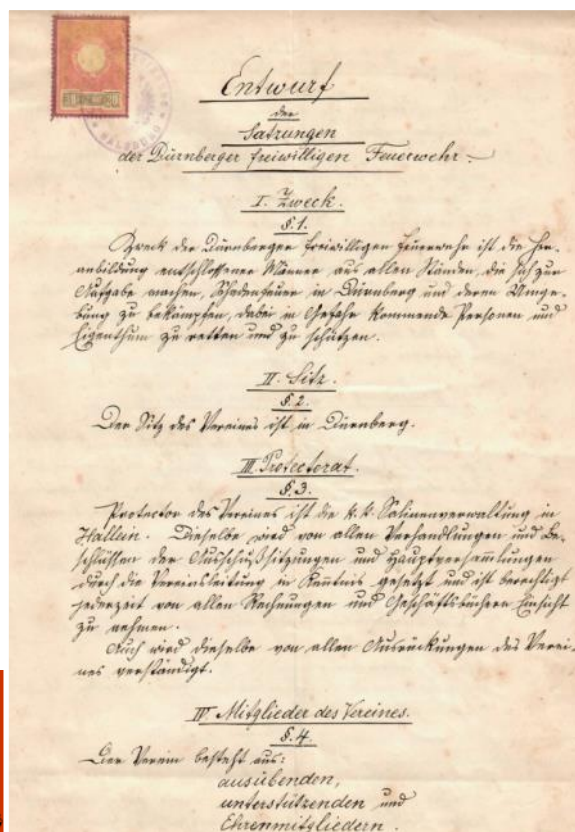 Entwurf
der
Satzungen
der Dürnberger freiwilligen Feuerwehr.
I. Zweck.
§.1.
Zweck der Dürnberger freiwilligen Feuerwehr ist die Her-
anbildung entschlossener Männer aus allen Ständen, die sich zur
Aufgabe machen, Schadenfeuer in Dürnberg und deren Umge-
bung zu bekämpfen, dabei in Gefahr kommende Personen und
Eigenthum zu retten und zu schützen.
II. Sitz.
§.2.
Der Sitz des Vereines ist in Dürnberg.
III. Protectorat.
§.3.
Protector des Vereines ist die k.k. Salinenverwaltung in
Hallein. Dieselbe wird von allen Verhandlungen und Be-
schlüssen der Ausschußsitzungen und Hauptversammlungen
durch die Vereinsleitung in Kenntnis gesetzt und ist berechtigt
jederzeit von allen Rechnungen und Geschäftsbüchern Einsicht
zu nehmen.
Auch wird dieselbe von allen Ausrückungen des Verei-
nes verständigt.
IV. Mitglieder des Vereines.
§.4.
Der Verein besteht aus:
ausübenden,
unterstützenden und
Ehrenmitgliedern.